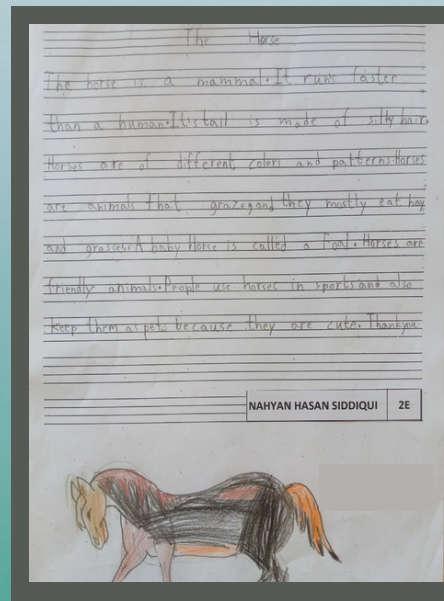 The Horse
The horse is a mammal. It runs faster
than a human. It's tail is made of silky hair.
Horses are of different colors and patterns. Horses
are animals that graze and they mostly eat hay
and grasses. A baby Horse is called a Foal. Horses are
friendly animals. People use horses in sports and also
keep them as pets because they are cute. Thankyou
NAHYAN HASAN SIDDIQUI 2E